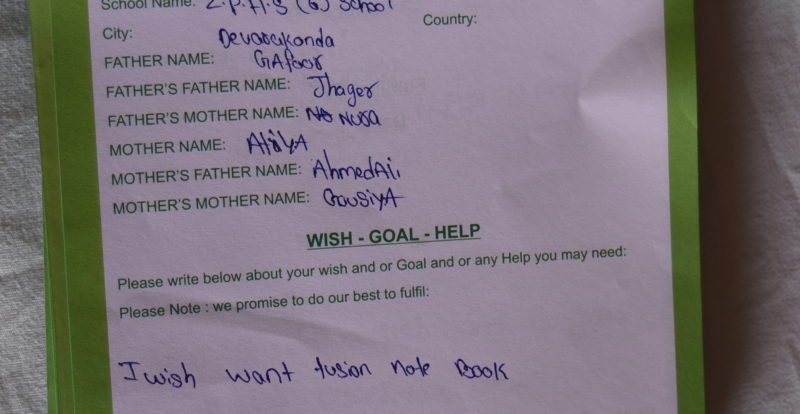 School Name: Z.P.H.S (G) School
City: Devarakonda Country:
FATHER NAME: GAfoor
FATHER'S FATHER NAME: Jhager
FATHER'S MOTHER NAME: Nusa
MOTHER NAME: AtiyA
MOTHER'S FATHER NAME: AhmedAli,
MOTHER'S MOTHER NAME: GousiyA
WISH - GOAL - HELP
Please write below about your wish and or Goal and or any Help you may need:
Please Note : we promise to do our best to fulfil:
I wish want fusion note Book